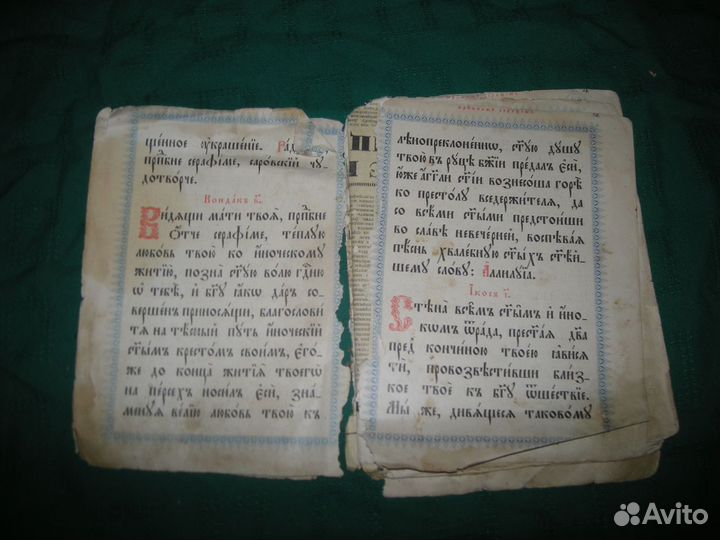 ще́нное ᲂу҆краше́нїе. Ра́д
прп҇бне серафі́ме, саро́вскїй чꙋ-
дотво́рче.
Конда́къ в҃.
Ви́дѧщи ма́ти твоѧ̀, прп҇бне
ѻ҆́тче серафі́ме, те́плꙋю
любо́вь твою̀ ко и҆́ноческомꙋ
житїю̀, позна̀ ст҃ꙋ́ю во́лю гдⷭ҇ню
ѡ҆ тебѣ̀, и҆ бг҃ꙋ ꙗ҆́кѡ да́ръ со-
верше́нъ принося́щи, благословѝ
тѧ̀ на тѣ́сный пꙋ́ть и҆́ноческїй
ст҃ы́мъ кресто́мъ свои́мъ, є҆го́-
же до конца̀ житїѧ̀ твоегѡ̀
на пе́рсехъ носи́лъ є҆сѝ, зна-
менꙋ́ѧ ве́лїю любо́вь твою̀ къ
лѣнопреклоне́ннѡ, ст҃ꙋ́ю дꙋ́шꙋ
твою̀ въ рꙋ́цѣ бж҃їи пре́далъ є҆сѝ,
ю҆́же а҆́гг҃ли ст҃і́и вознесо́ша горѣ̀
ко престо́лꙋ вседержи́телѧ, да
со всѣ́ми ст҃ы́ми предстои́ши
во сла́вѣ невече́рней, воспѣва́ѧ
пѣ́снь хвале́бнꙋю ст҃ы́хъ ст҃ѣ́й-
шемꙋ сло́вꙋ: А҆ллилꙋ́їа.
І҆́косъ і҃.
Стѣна̀ всѣ́мъ ст҃ы́мъ и҆ и҆́но-
кѡмъ ѿра́да, прест҃а́ѧ дв҃а
пред̾ кончи́ною твое́ю ꙗ҆ви́сѧ
тѝ, провозвѣсти́вши бли́з-
кое твоѐ къ бг҃ꙋ ѿше́ствїе.
Мы́ же, дивѧ́щесѧ таково́мꙋ
Avito